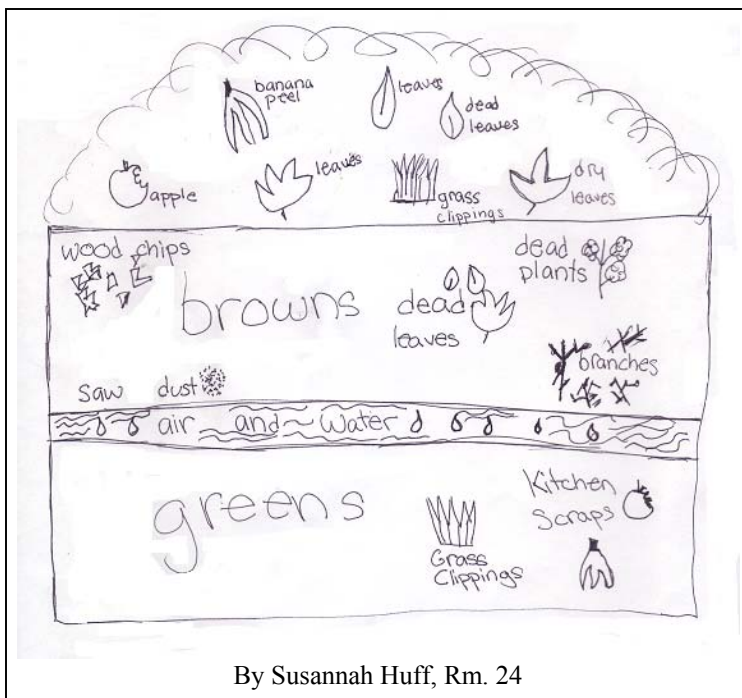 banana
peel
leaves
dead
leaves
apple
leaves
grass
clippings
dry
leaves
wood chips
browns
dead
leaves
dead
plants
branches
saw dust
air and water
greens
Grass
Clippings
Kitchen
Scraps
By Susannah Huff, Rm. 24